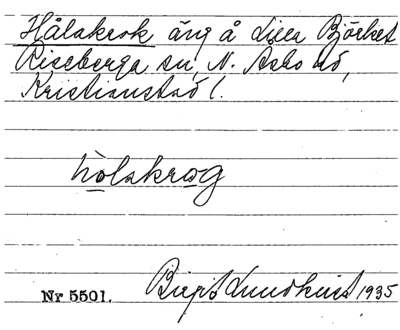 Hålakrok äng å Lilla Björket
Riseberga sn, N. Åsbo hd,
Kristianstad l.
hòlakrog
Nr 5501. Birgit Lundkvist 1935